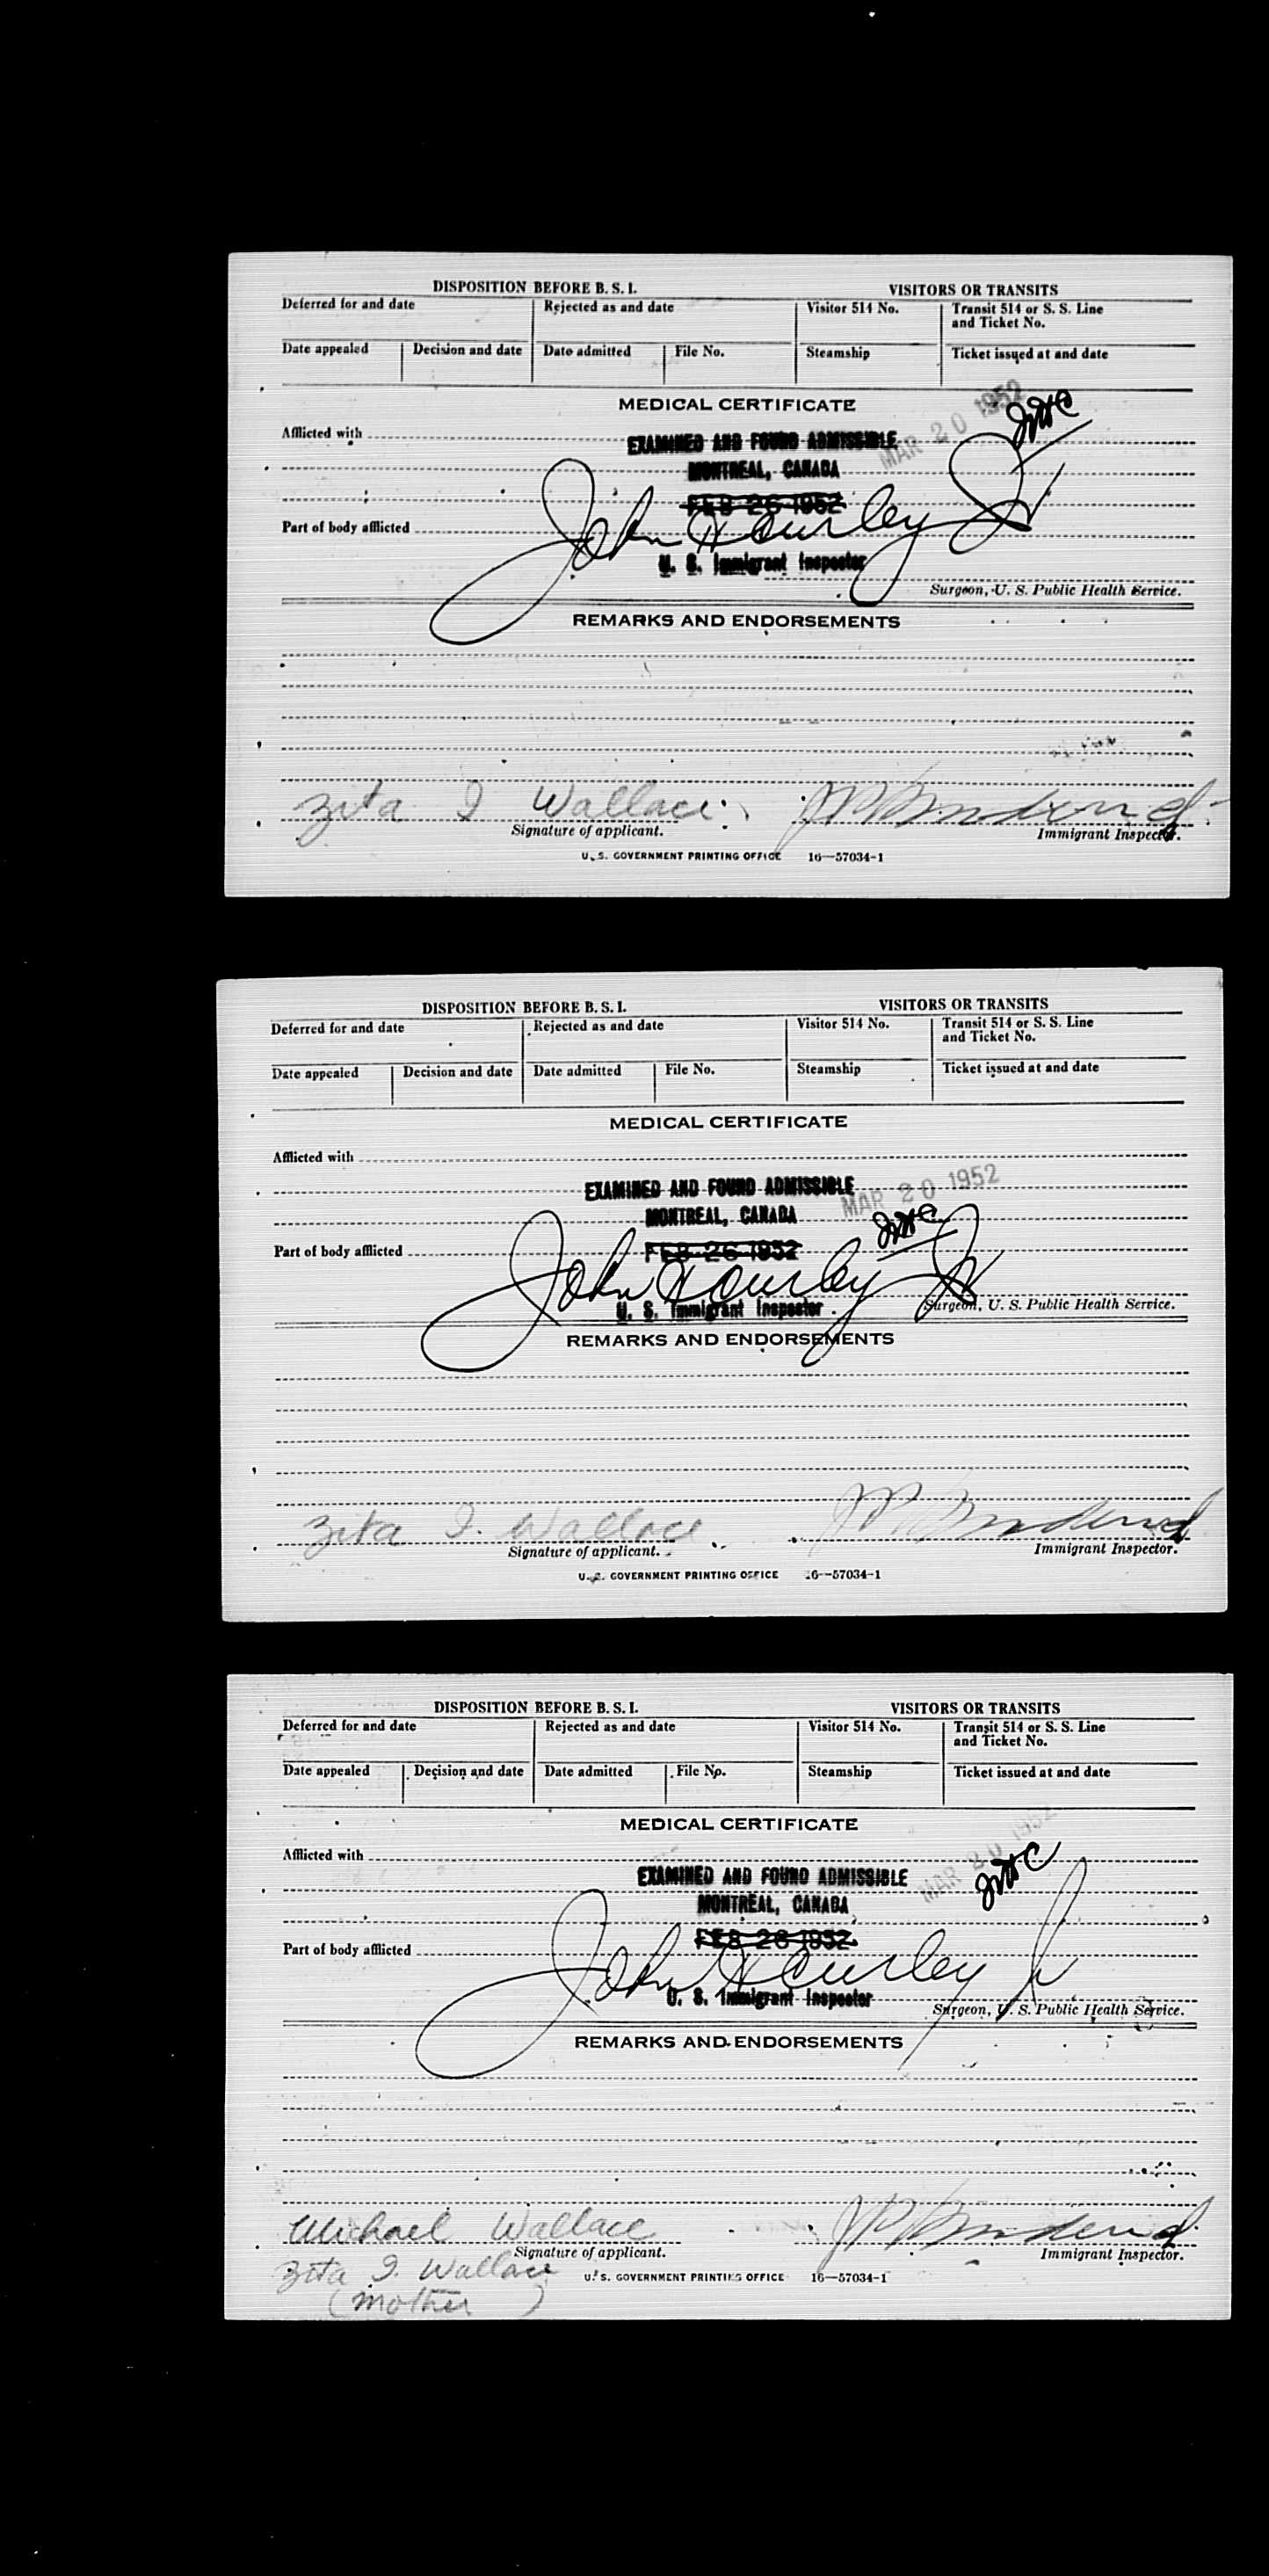 DISPOSITION BEFORE B. S. I. VISITORS OR TRANSITS
Deferred for and date Rejected as and date Visitor 514 No. Transit 514 or S. S. Line and Ticket No.
Date appealed Decision and date Date admitted File No. Steamship Ticket issued at and date
MEDICAL CERTIFICATE
MAR 20 1952
Afflicted with
EXAMINED AND FOUND ADMISSIBLE
MONTREAL, CANADA
FEB 26 1952
Part of body afflicted
John Hourley Jr
U. S. Immigrant Inspector
Surgeon, U. S. Public Health Service.
REMARKS AND ENDORSEMENTS
Zita I Wallace
Signature of applicant. Immigrant Inspector.
U. S. GOVERNMENT PRINTING OFFICE 16—57034-1
DISPOSITION BEFORE B. S. I. VISITORS OR TRANSITS
Deferred for and date Rejected as and date Visitor 514 No. Transit 514 or S. S. Line and Ticket No.
Date appealed Decision and date Date admitted File No. Steamship Ticket issued at and date
MEDICAL CERTIFICATE
Afflicted with
EXAMINED AND FOUND ADMISSIBLE
MAR 20 1952
MONTREAL, CANADA
Part of body afflicted
FEB 26 1952
John Hourley Jr
U. S. Immigrant Inspector
Surgeon, U. S. Public Health Service.
REMARKS AND ENDORSEMENTS
Zita I. Wallace
Signature of applicant. Immigrant Inspector.
U. S. GOVERNMENT PRINTING OFFICE 16—57034-1
DISPOSITION BEFORE B. S. I. VISITORS OR TRANSITS
Deferred for and date Rejected as and date Visitor 514 No. Transit 514 or S. S. Line and Ticket No.
Date appealed Decision and date Date admitted File No. Steamship Ticket issued at and date
MEDICAL CERTIFICATE
MAR 20 1952
Afflicted with
EXAMINED AND FOUND ADMISSIBLE
MONTREAL, CANADA
FEB 26 1952
Part of body afflicted
John Hourley Jr
U. S. Immigrant Inspector
Surgeon, U. S. Public Health Service.
REMARKS AND ENDORSEMENTS
Michael Wallace
Signature of applicant. Immigrant Inspector.
Zita I. Wallace
U. S. GOVERNMENT PRINTING OFFICE 16—57034-1
(Mother)